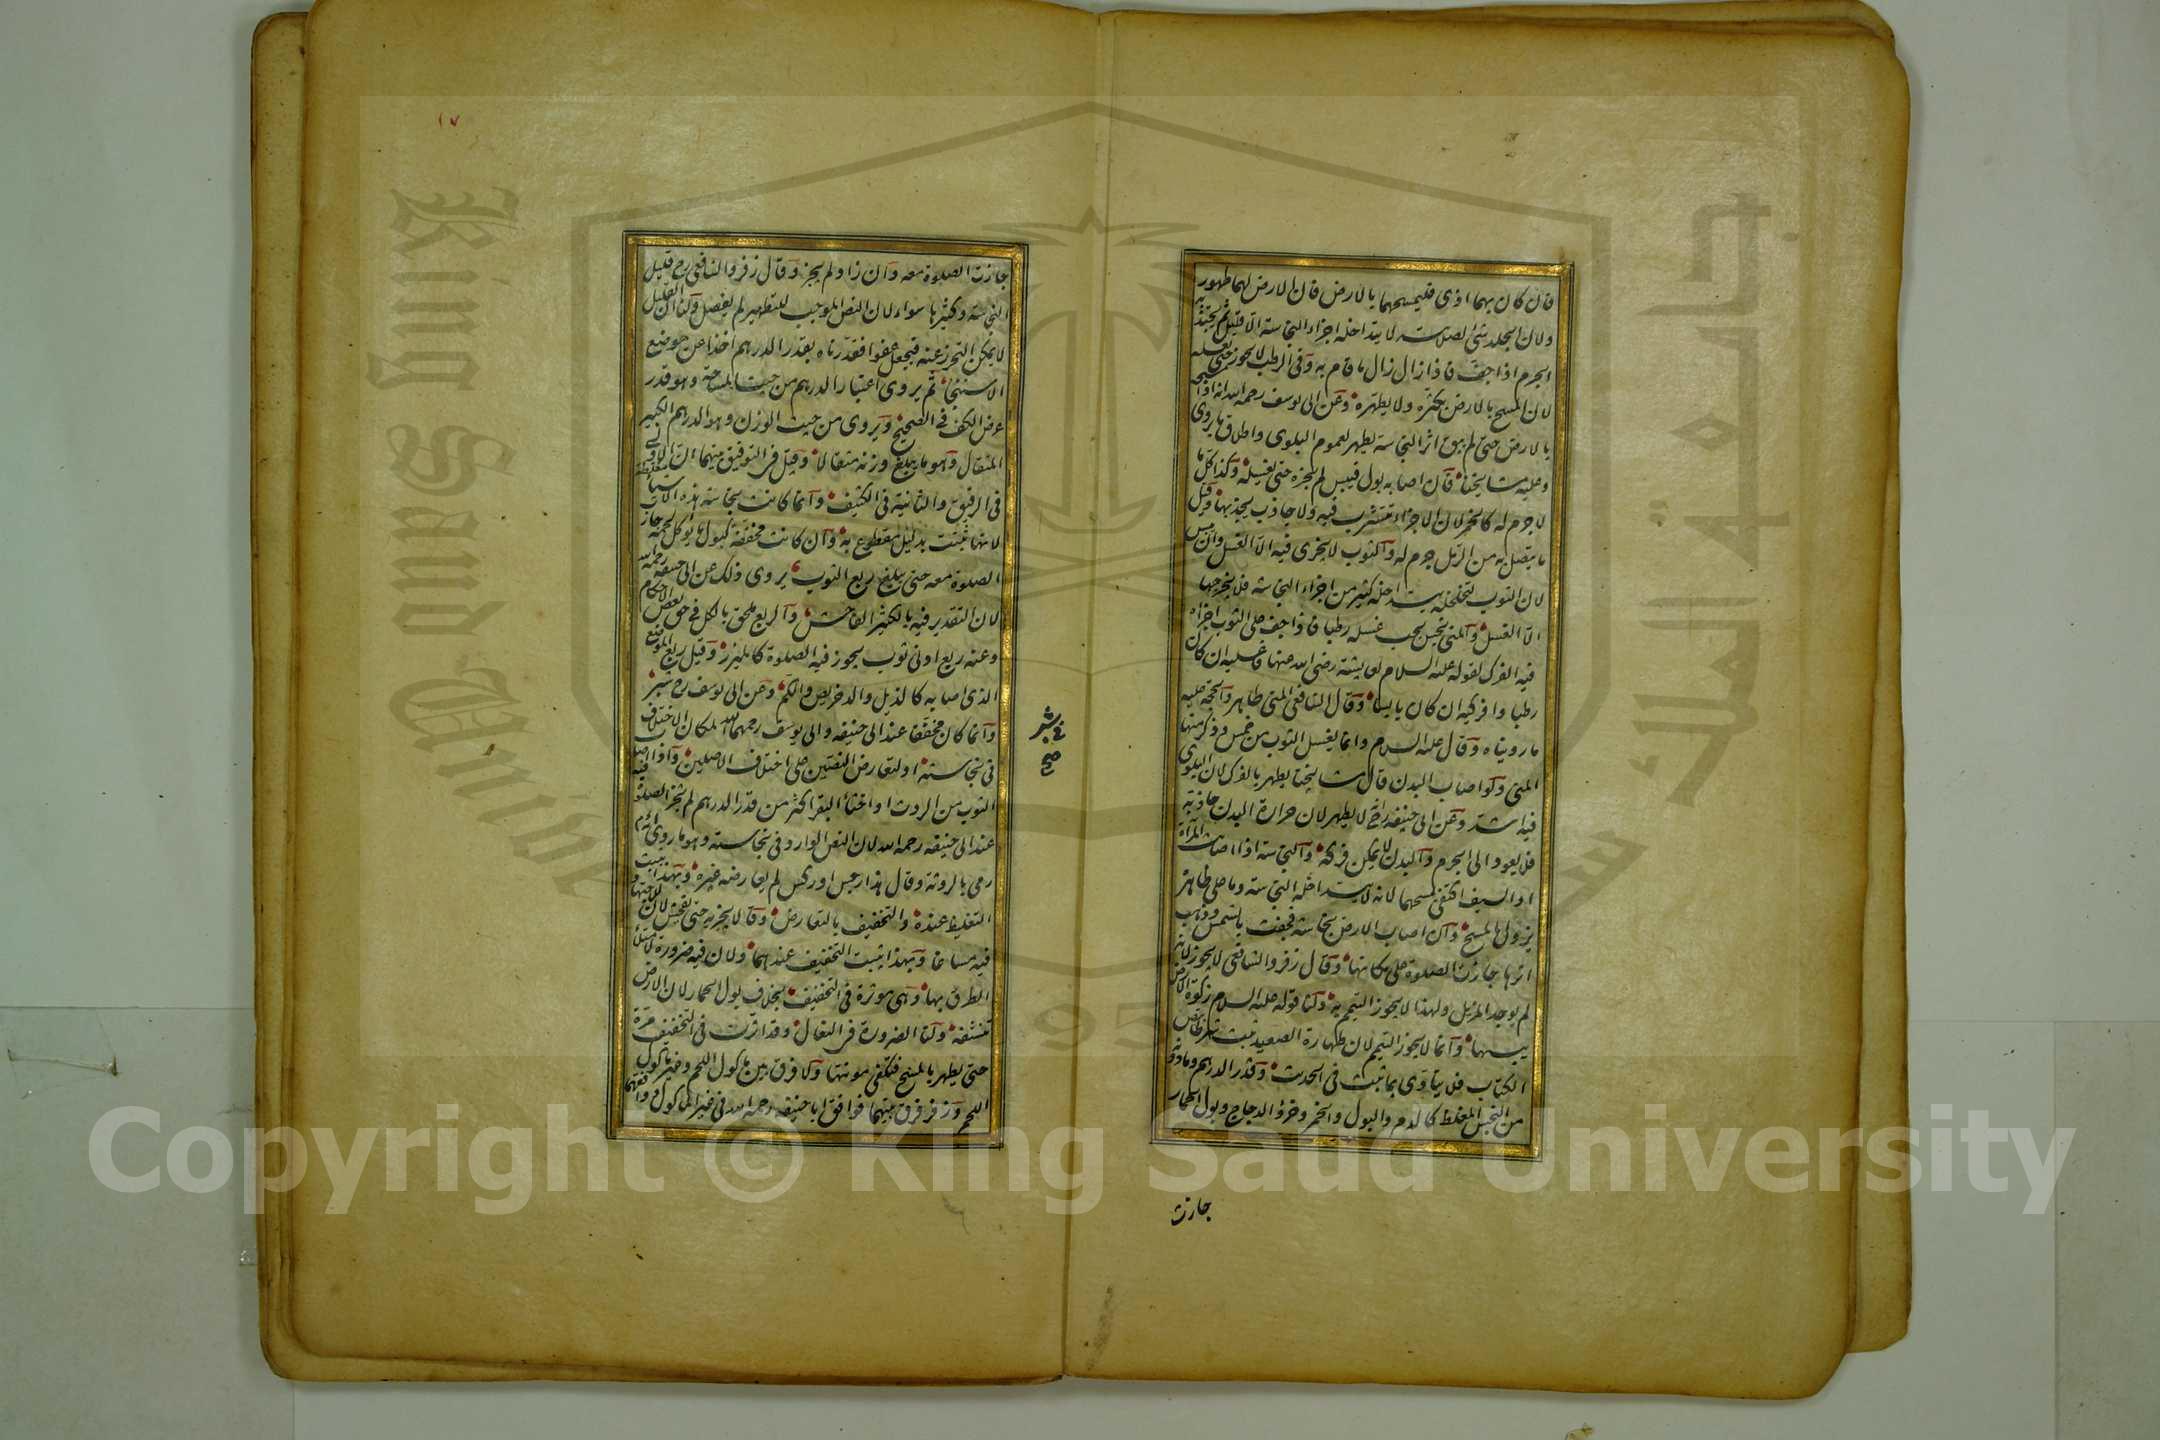 فان كان بهما اذى فليمسحهما بالارض فان الارض لهما طهور
ولان الجلد شئ لصلابته لا يتداخله اجزاء النجاسة الا قليل ثم يجتذبه
الجرم اذا جف فاذا زال زال ما قام به وفى الرطب لا يجوز حتى يغسله
لان المسح بالارض يكثره ولا يطهره وعن ابى يوسف رحمه الله انه اذا مسحه
بالارض حتى لم يبق اثر النجاسة يطهر لعموم البلوى واطلاق ما يروى
وعليه مشايخنا فان اصابه بول فيبس لم يجزه حتى يغسله وكذا كل ما
لا جرم له كالخمر لان الاجزاء تتشرب فيه ولا جاذب يجذبها وقيل
ما يتصل به من الرمل جرم له والثوب لا يجزى فيه الا الغسل وان يبس
لان الثوب لتخلخله يتداخله كثير من اجزاء النجاسة فلا يخرجها
الا الغسل والمنى نجس يجب غسله رطبا فاذا جف على الثوب اجزاه
فيه الفرك لقوله عليه السلام لعايشة رضى الله عنها فاغسليه ان كان
رطبا وافركيه ان كان يابسا وقال الشافعى المنى طاهر والحجة عليه
ما رويناه وقال عليه السلام وانما يغسل الثوب من خمس وذكر منها
المنى ولو اصاب البدن قال مشايخنا يطهر بالفرك لان البلوى
فيه اشد وعن ابى حنيفه رح لا يطهر لان حرارة البدن جاذبة
فلا يعود الى الجرم والبدن لا يمكن فركه والنجاسة اذا اصابت المرآة
او السيف اكتفى بمسحهما لانه لا يتداخله النجاسة وما على ظاهره
يزول بالمسح وان اصاب الارض نجاسة فجفت بالشمس وذهب
اثرها جازت الصلوة على مكانها وقال زفر والشافعى لا يجوز لانه
لم يوجد المزيل ولهذا لا يجوز التيمم به ولنا قوله عليه السلام زكوة الارض
يبسها وانما لا يجوز التيمم لان طهارة الصعيد ثبت بنص
الكتاب فلا يتأدى بما ثبت فى الحديث وقدر الدرهم وما دونه
من النجس المغلظ كالدم والبول والخمر وخرؤ الدجاج وبول الحمار
جازت
١٧
جازت الصلوة معه وان زاد لم يجز وقال زفر والشافعى رح قليل
النجاسة وكثيرها سواء لان النص الموجب للتطهير لم يفصل ولنا ان القليل
لا يمكن التحرز عنه فيجعل عفوا فقدرناه بقدر الدرهم اخذا عن موضع
الاستنجاء ثم يروى اعتبار الدرهم من حيث المساحة وهو قدر
عرض الكف فى الصحيح ويروى من حيث الوزن وهو الدرهم الكبير
المثقال وهو ما يبلغ وزنه مثقالا وقيل فى التوفيق بينهما ان الاولى
فى الرقيق والثانية فى الكثيف وانما كانت نجاسة هذه الاشياء مغلظة
لانها ثبتت بدليل مقطوع به وان كانت مخففة كبول ما يوكل لحمه جاز
الصلوة معه حتى يبلغ ربع الثوب يروى ذلك عن ابى حنيفه رحمه الله
لان التقدير فيه بالكثير الفاحش والربع ملحق بالكل فى حق بعض الاحكام
وعنه ربع ادنى ثوب يجوز فيه الصلوة كالميزر وقيل ربع الموضع
الذى اصابه كالذيل والدخريص والكم وعن ابى يوسف رح شبر
فى شبر
صح
وانما كان مخففا عند ابى حنيفه وابى يوسف رحمهما الله لمكان الاختلاف
فى نجاسته او لتعارض النصين على اختلاف الاصلين واذا اصاب
الثوب من الروث او اخثاء البقر اكثر من قدر الدرهم لم تجز الصلوة فيه
عند ابى حنيفه رحمه الله لان النص الوارد فى نجاسته وهو ما روى انه عم
رمى بالروثة وقال هذا رجس او ركس لم يعارضه غيره وبهذا يثبت
التغليظ عنده والتخفيف بالتعارض وقالا يجزيه حتى يفحش لان للاجتهاد
فيه مساغا وبهذا يثبت التخفيف عندهما ولان فيه ضرورة لامتلاء
الطرق بها وهى موثرة فى التخفيف بخلاف بول الحمار لان الارض
تنشفه ولنا الضرورة فى النعال وقد اثرت فى التخفيف مرة
حتى يطهر بالمسح فتكفى مونتها ولا فرق بين ماكول اللحم وغير ماكول
اللحم وزفر فرق بينهما فوافق ابا حنيفه رحمه الله فى غير الماكول ووافقهما
King Saud University
Copyright © King Saud University